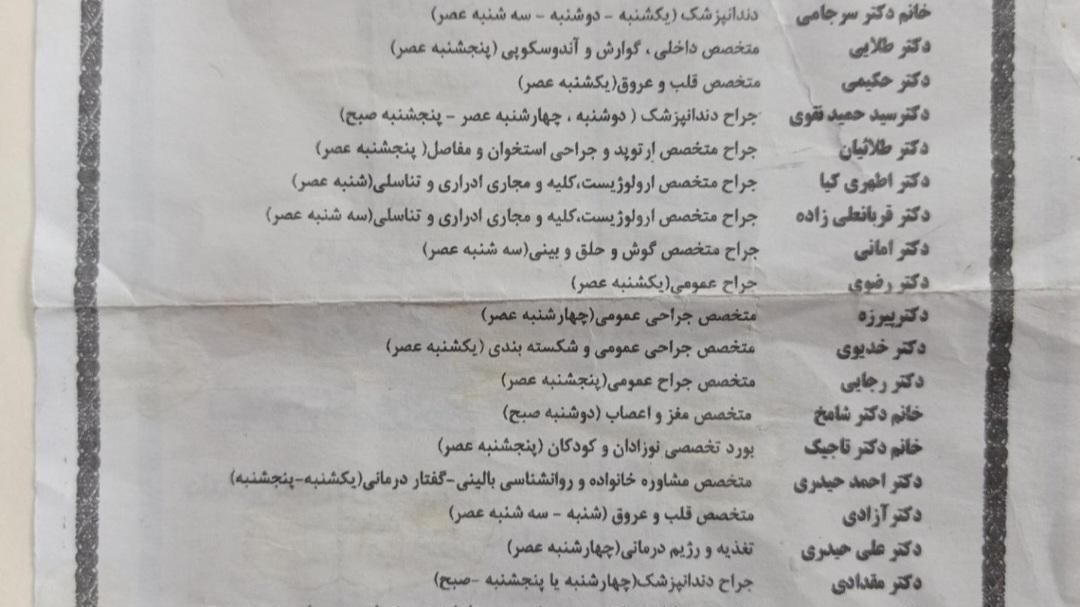 خانم دکتر سرجامی دندانپزشک (یکشنبه - دوشنبه - سه شنبه عصر)
دکتر طلایی متخصص داخلی ، گوارش و آندوسکوپی (پنجشنبه عصر)
دکتر حکیمی متخصص قلب و عروق(یکشنبه عصر)
دکترسید حمید نقوی جراح دندانپزشک ( دوشنبه ، چهارشنبه عصر - پنجشنبه صبح)
دکتر طلائیان جراح متخصص ارتوپد و جراحی استخوان و مفاصل( پنجشنبه عصر)
دکتر اطهری کیا جراح متخصص ارولوژیست،کلیه و مجاری ادراری و تناسلی(شنبه عصر)
دکتر قربانعلی زاده جراح متخصص ارولوژیست،کلیه و مجاری ادراری و تناسلی(سه شنبه عصر)
دکتر امانی جراح متخصص گوش و حلق و بینی(سه شنبه عصر)
دکتر رضوی جراح عمومی(یکشنبه عصر)
دکترپیرزه متخصص جراحی عمومی(چهارشنبه عصر)
دکتر خدیوی متخصص جراحی عمومی و شکسته بندی (یکشنبه عصر)
دکتر رجایی متخصص جراح عمومی(پنجشنبه عصر)
خانم دکتر شامخ متخصص مغز و اعصاب (دوشنبه صبح)
خانم دکتر تاجیک بورد تخصصی نوزادان و کودکان (پنجشنبه عصر)
دکتر احمد حیدری متخصص مشاوره خانواده و روانشناسی بالینی-گفتار درمانی(یکشنبه-پنجشنبه)
دکترآزادی متخصص قلب و عروق (شنبه - سه شنبه عصر)
دکتر علی حیدری تغذیه و رژیم درمانی(چهارشنبه عصر)
دکتر مقدادی جراح دندانپزشک(چهارشنبه یا پنجشنبه -صبح)